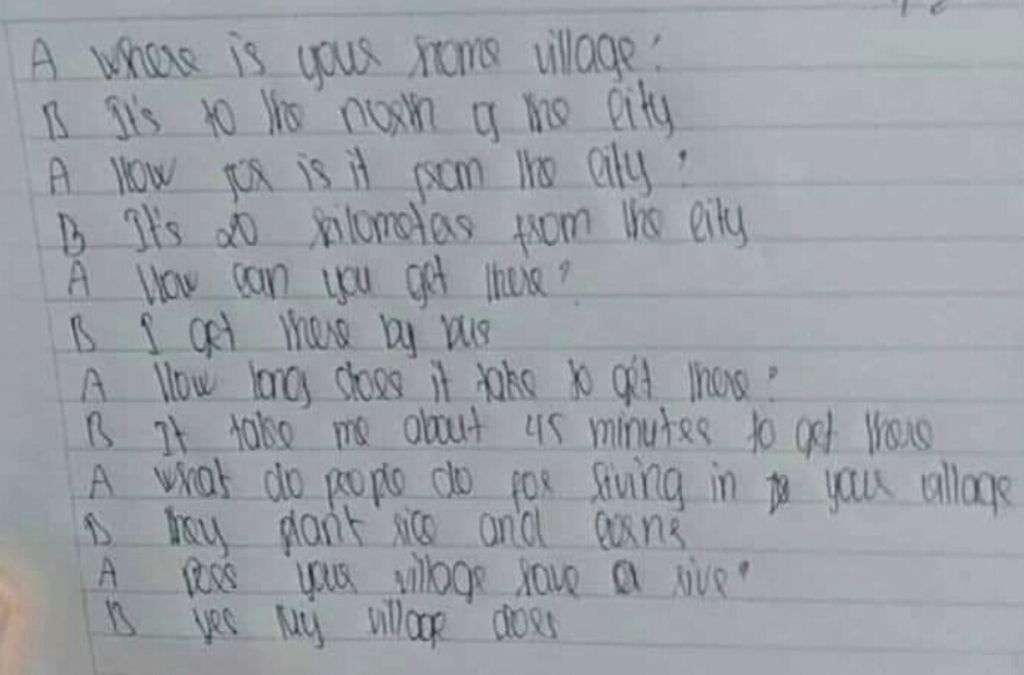 A Where is your home village?
B It's to the north of the city
A How far is it from the city?
B It's 20 kilometers from the city
A How can you get there?
B I get there by bus
A How long does it take to get there?
B It take me about 45 minutes to get there
A what do people do for living in your village
B they plant rice and corns
A Does your village have a rive?
B yes my village does